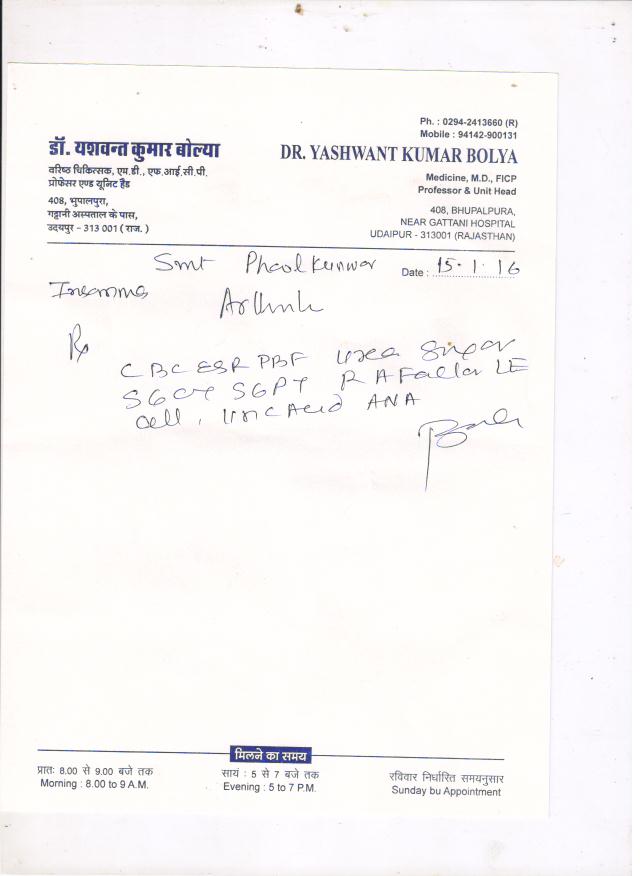 Ph. : 0294-2413660 (R)
Mobile : 94142-900131
डॉ. यशवन्त कुमार बोल्या
वरिष्ठ चिकित्सक, एम.डी., एफ.आई.सी.पी.
प्रोफेसर एण्ड यूनिट हैड
408, भुपालपुरा,
गट्टानी अस्पताल के पास,
उदयपुर - 313 001 ( राज. )
DR. YASHWANT KUMAR BOLYA
Medicine, M.D., FICP
Professor & Unit Head
408, BHUPALPURA,
NEAR GATTANI HOSPITAL
UDAIPUR - 313001 (RAJASTHAN)
Smt Phoolkunwar
Date : 15.1.16
Rx
CBC ESR PBF Urea Sugar
SGOT SGPT R A Factor LE
Cell, Uric Acid ANA
मिलने का समय
प्रातः 8.00 से 9.00 बजे तक
Morning : 8.00 to 9 A.M.
सायं : 5 से 7 बजे तक
Evening : 5 to 7 P.M.
रविवार निर्धारित समयनुसार
Sunday bu Appointment